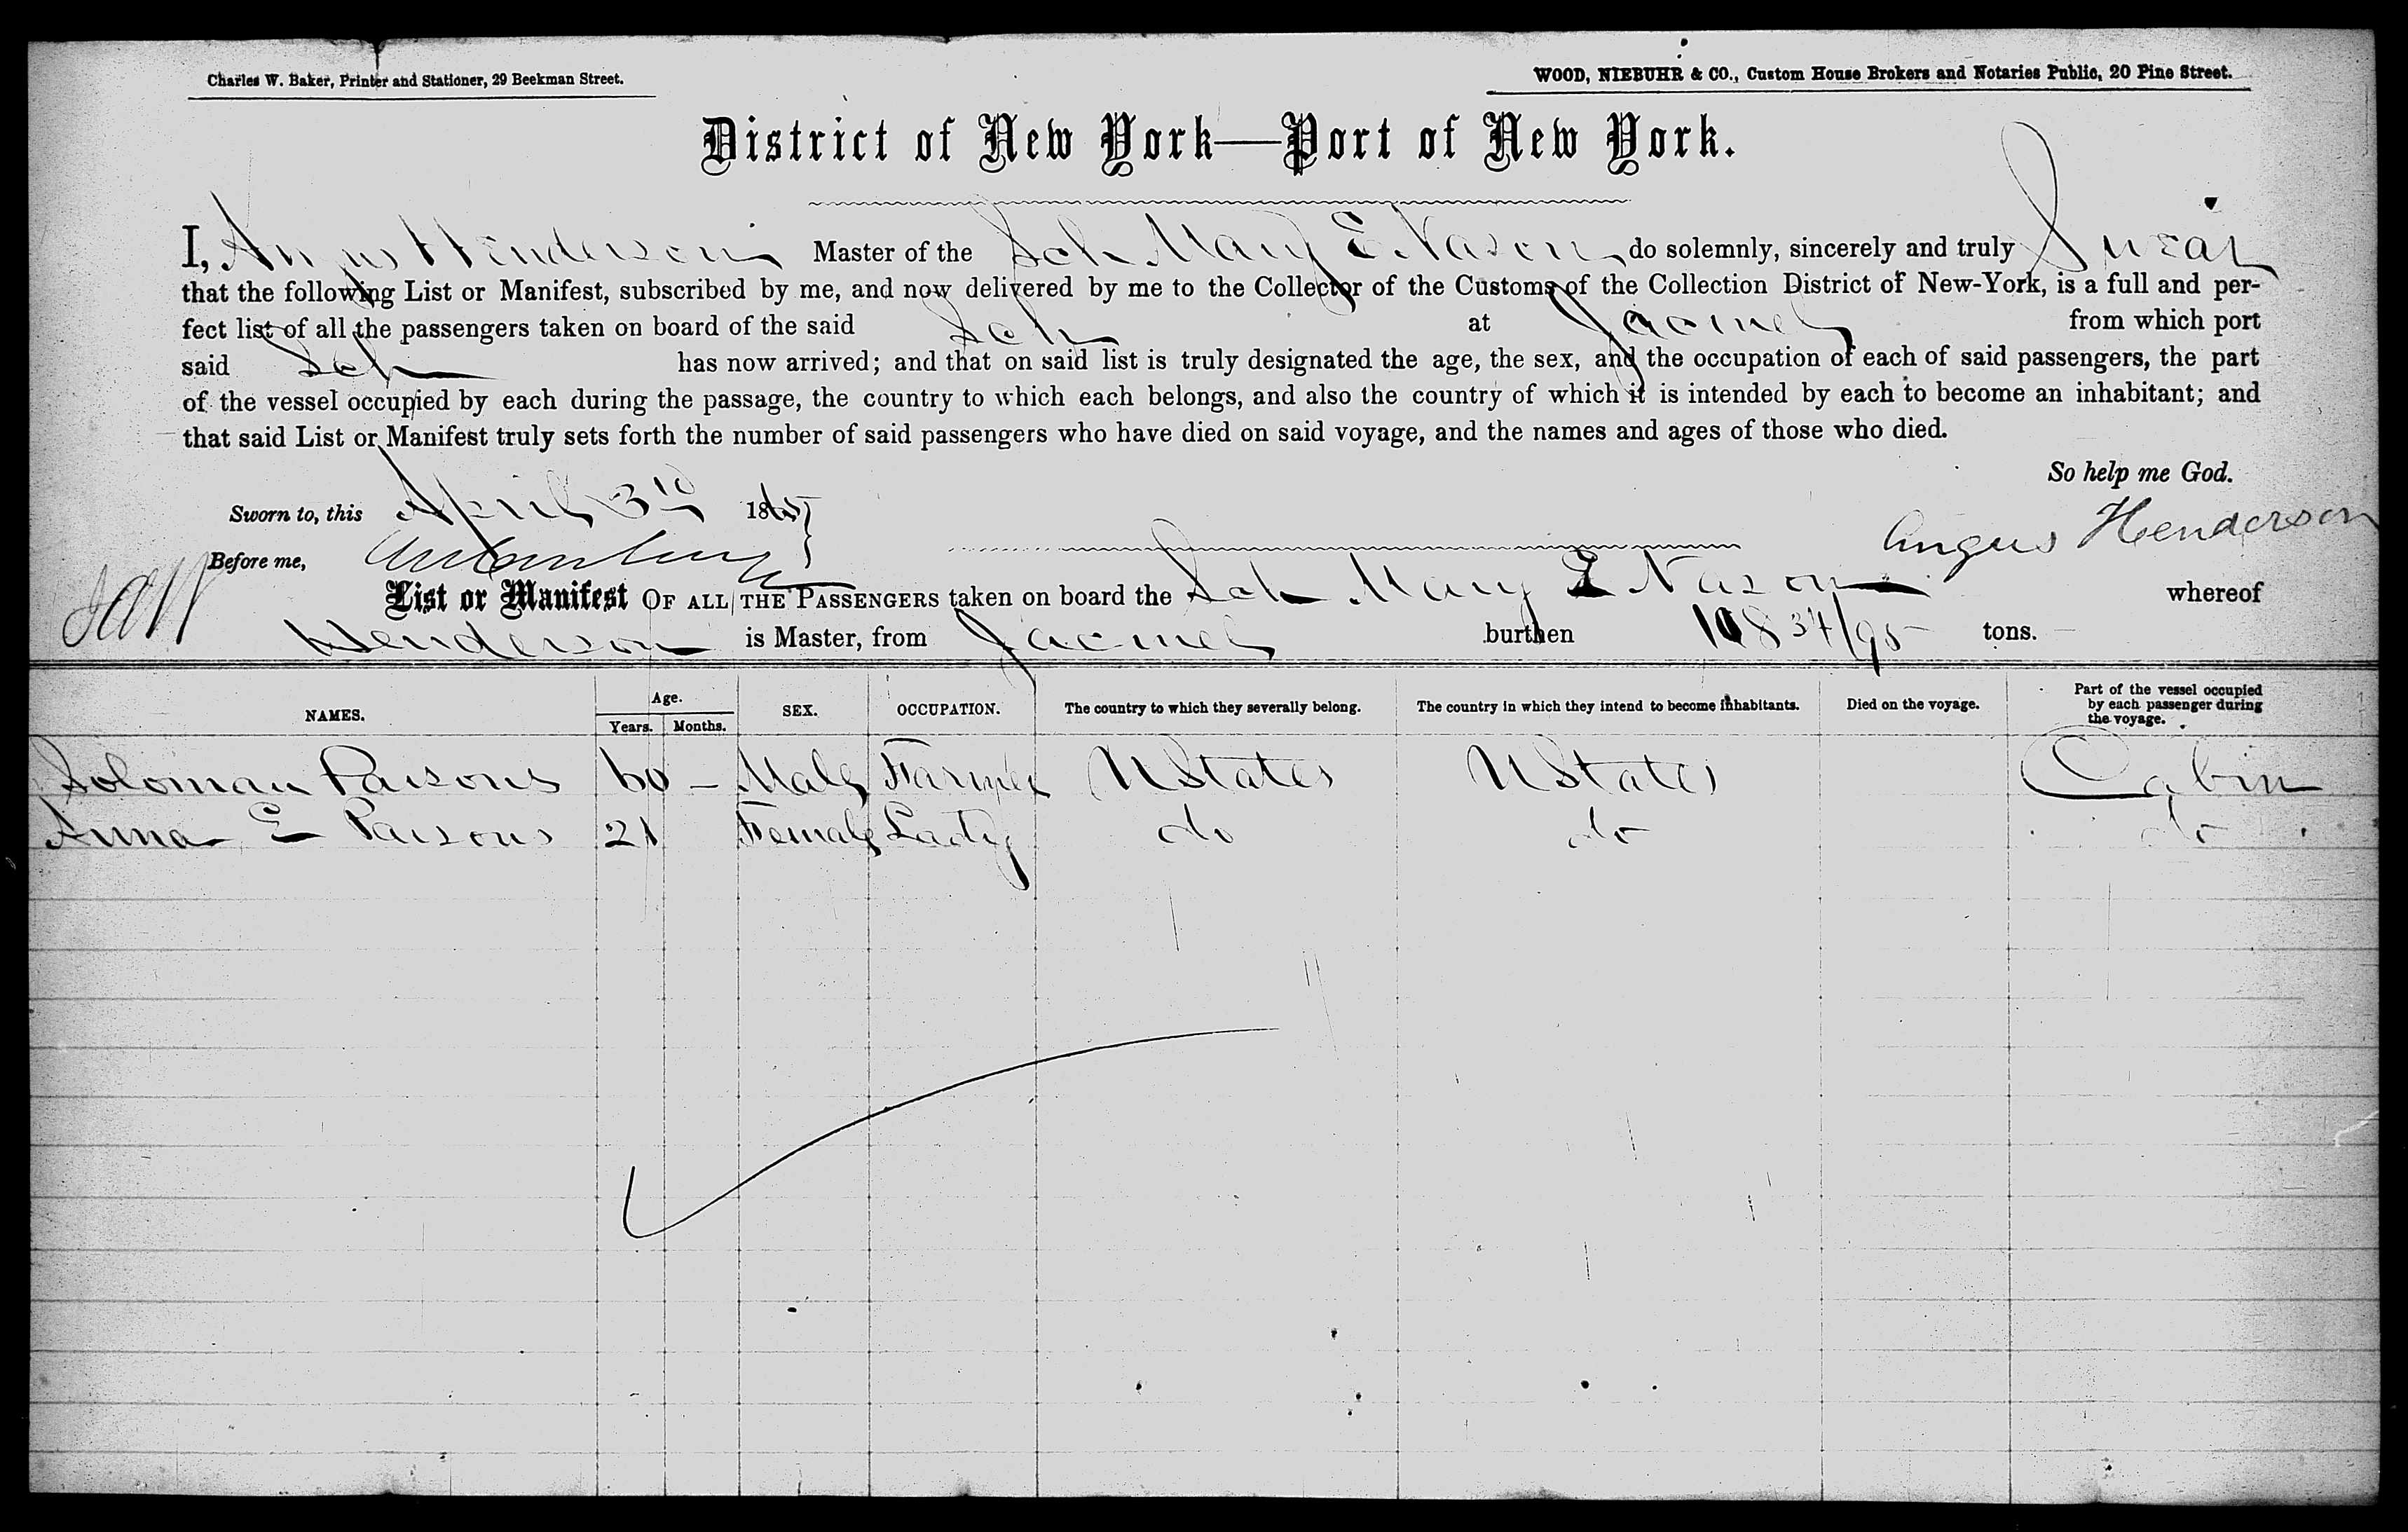 Charles W. Baker, Printer and Stationer, 29 Beekman Street.
WOOD, NIEBUHR & CO., Custom House Brokers and Notaries Public, 20 Pine Street.
District of New York—Port of New York.
I, Angus Henderson Master of the Sch Mary E Nason do solemnly, sincerely and truly Swear
that the following List or Manifest, subscribed by me, and now delivered by me to the Collector of the Customs of the Collection District of New-York, is a full and per-
fect list of all the passengers taken on board of the said Sch at Jacmel from which port
said Sch has now arrived; and that on said list is truly designated the age, the sex, and the occupation of each of said passengers, the part
of the vessel occupied by each during the passage, the country to which each belongs, and also the country of which it is intended by each to become an inhabitant; and
that said List or Manifest truly sets forth the number of said passengers who have died on said voyage, and the names and ages of those who died.
So help me God.
Sworn to, this April 3rd 1865
Angus Henderson
Before me,
List or Manifest OF ALL THE PASSENGERS taken on board the Sch Mary E Nason whereof
Henderson is Master, from Jacmel burthen 108 34/95 tons.
NAMES. Age. Years. Months. SEX. OCCUPATION. The country to which they severally belong. The country in which they intend to become inhabitants. Died on the voyage. Part of the vessel occupied by each passenger during the voyage.
Soloman Parsons 60 – Male Farmer UStates UStates Cabin
Anna E Parsons 21 Female Lady do do do